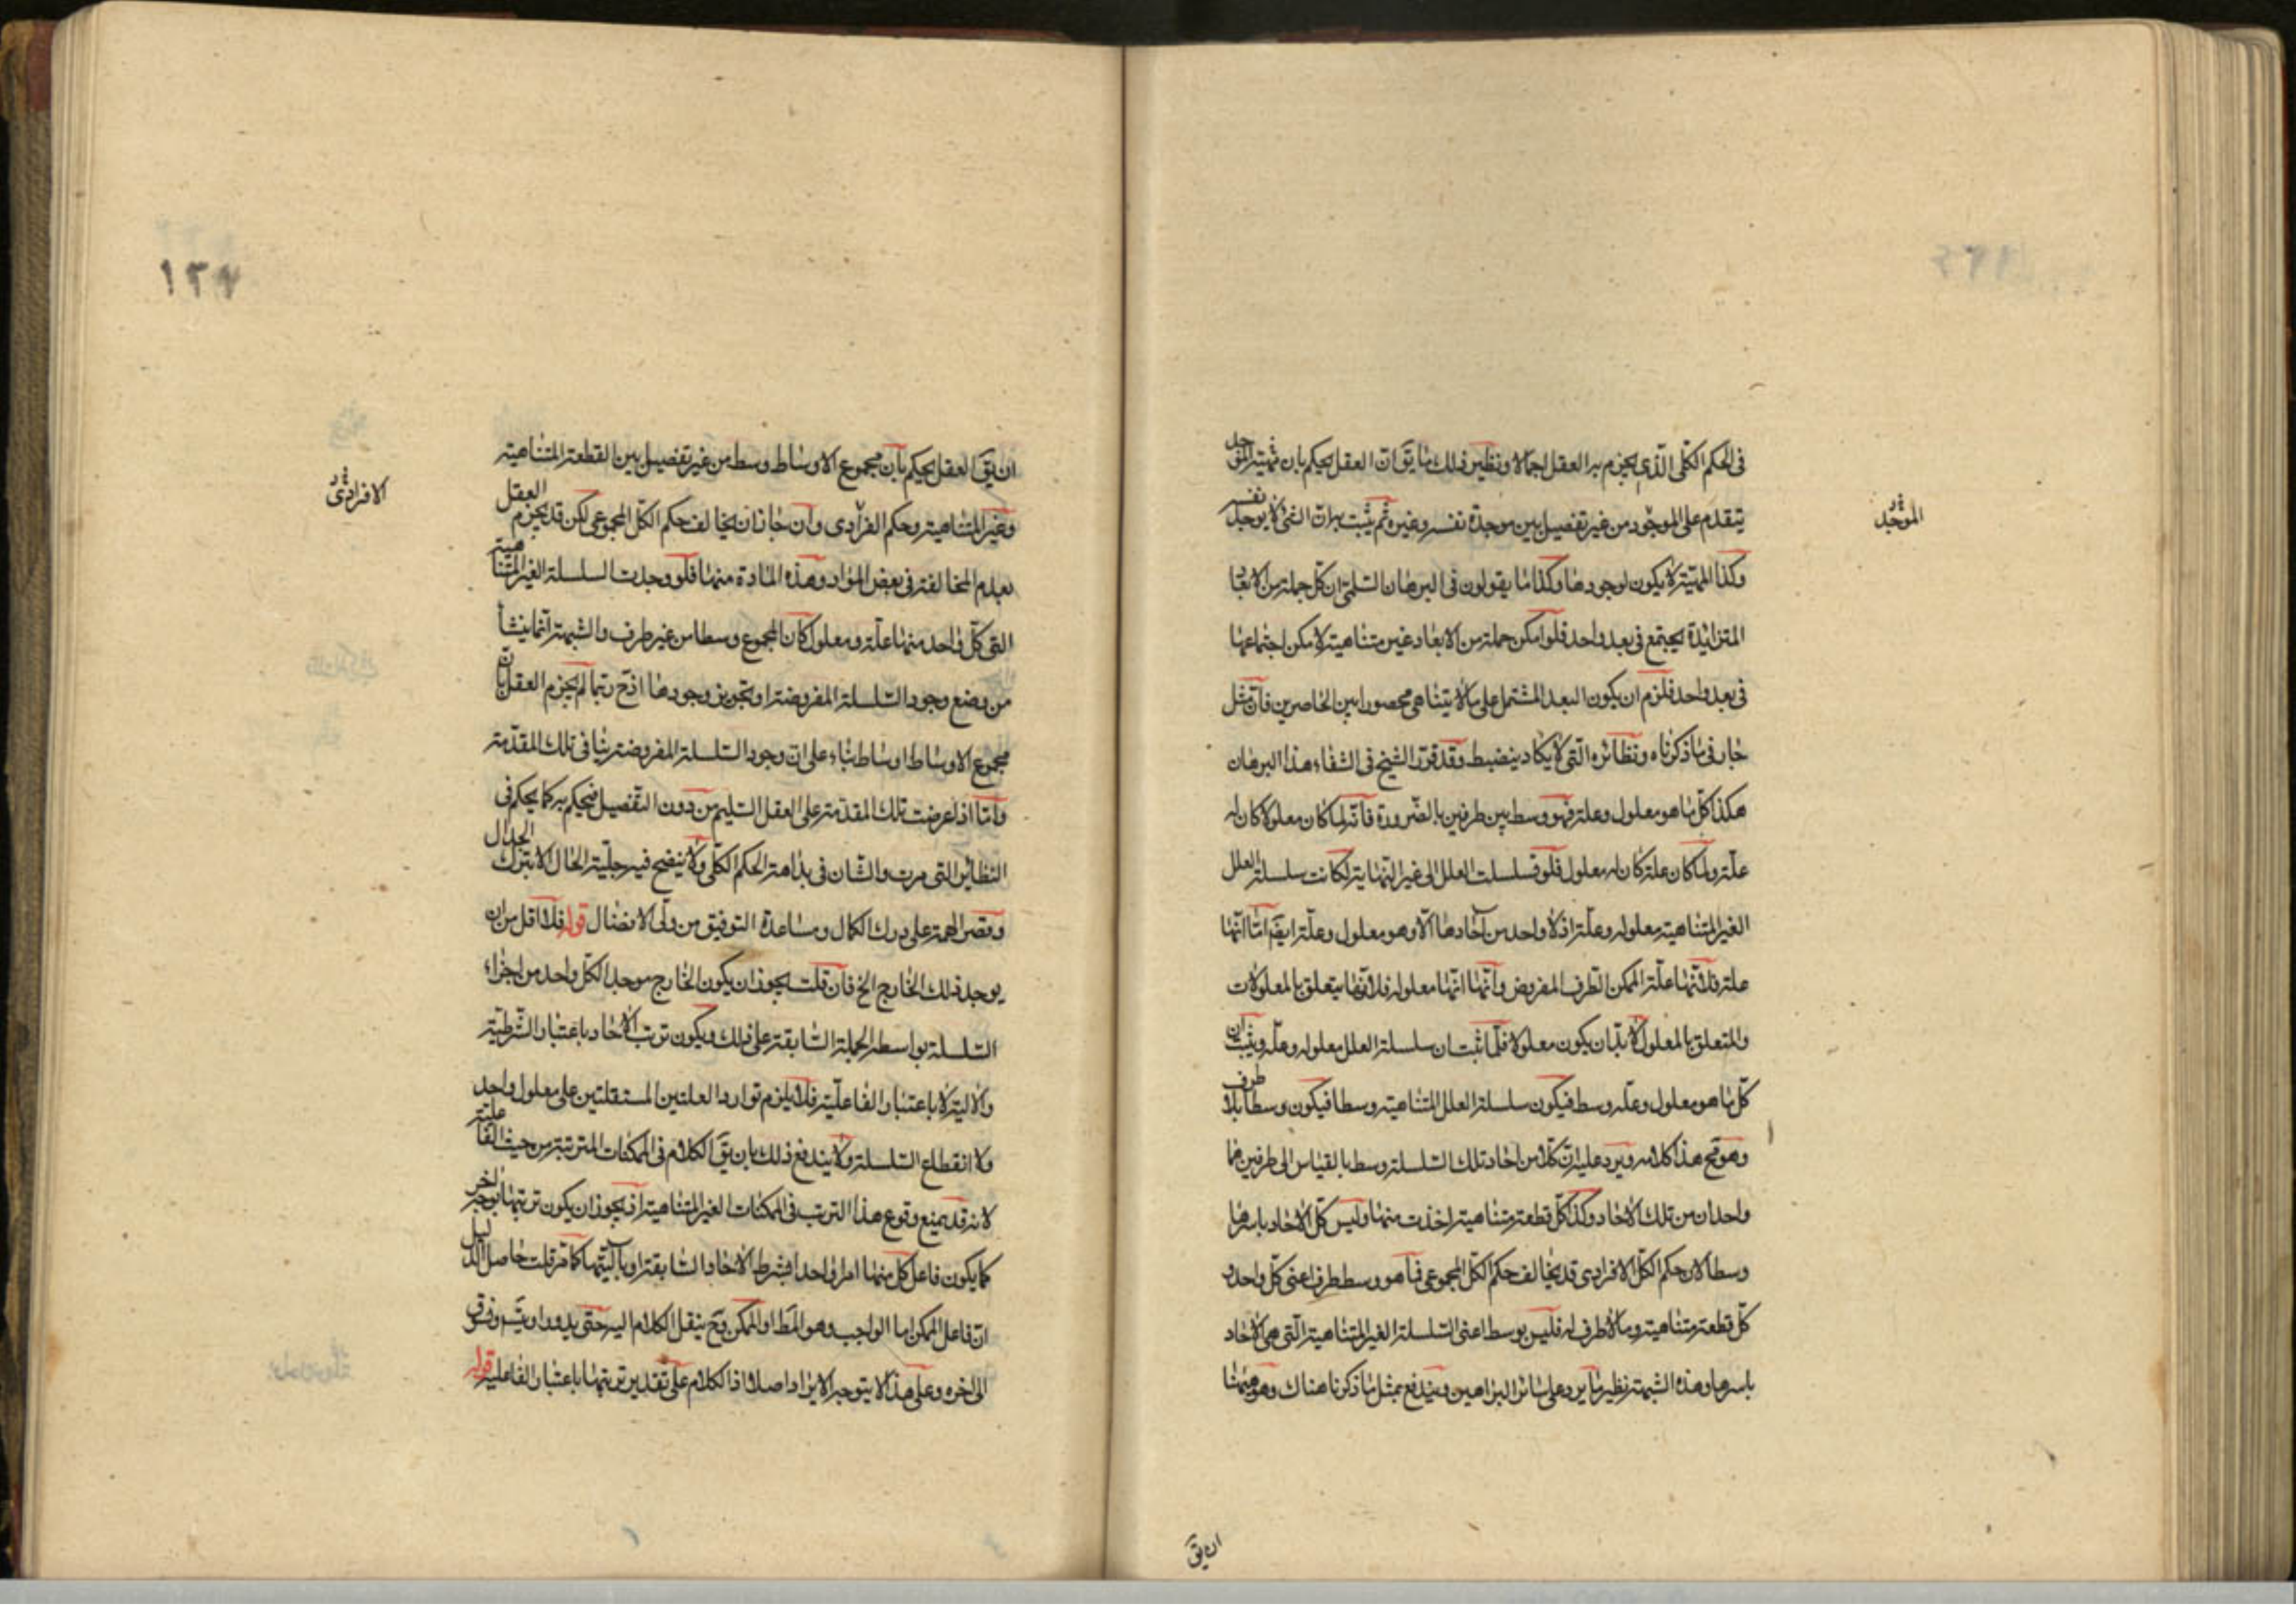 فى الحكم الكلى الذى يجزم به العقل اجمالا ونظير ذلك ما يق ان العقل يحكم بان مهية الموجد
يتقدم على الموجود من غير تفصيل بين موجدة نفسه وغيره ثم يثبت به ان الشئ لا يوجد نفسه
الموجد
وكذا المهية لا يكون لوجودها وكذا ما يقولون فى البرهان السلمى ان كل جملة من الابعاد
المتزائدة يجتمع فى بعد واحد فلو امكن جملة من الابعاد غير متناهية لامكن اجتماعها
فى بعد واحد فلزم ان يكون البعد المشتمل على ما لا يتناهى محصورا بين الحاصرين فان مثل
جار فى ما ذكرناه ونظائره التى لا يكاد ينضبط وقد قرر الشيخ فى الشفاء هذا البرهان
هكذا كل ما هو معلول وعلة فهو وسط بين طرفين بالضرورة فانه لما كان معلولا كان له
علة ولما كان علة كان له معلول فلو تسلسلت العلل الى غير النهاية لكانت سلسلة العلل
الغير المتناهية معلولة وعلة اذ لا واحد من آحادها الا وهو معلول وعلة ايض اما انها
علة فلانها علة الممكن الطرف المفروض وانها انها معلولة فلانها يتعلق بالمعلولات
والمتعلق بالمعلول لا بد ان يكون معلولا فلما ثبت ان سلسلة العلل معلولة وعلة ويثبت ان
كل ما هو معلول وعلة وسط فيكون سلسلة العلل المتناهية وسطا فيكون وسطا بلا طرف
وهو مح هذا كلامه ويرد عليه ان كلا من احاد تلك السلسلة وسط بالقياس الى طرفين هما
واحدان من تلك الاحاد وكذا كل قطعة متناهية اخذت منها وليس كل الاحاد باسرها
وسطا لان حكم الكل الافرادى قد يخالف حكم الكل المجموعى فما هو وسط طرف اعنى كل واحد و
كل قطعة متناهية وما لا طرف له فليس بوسط اعنى السلسلة الغير المتناهية التى هى الاحاد
باسرها وهذه الشبهة نظير ما يرد على سائر البراهين ويندفع بمثل ما ذكرنا هناك وهو هيهنا
ان يق
١٢٧
ان يق العقل يحكم بان مجموع الاوساط وسط من غير تفصيل بين القطعة المتناهية
الافرادى
وغير المتناهية وحكم الفرادى وان جاز ان يخالف حكم الكل المجموعى لكن قد يجزم العقل
بعدم المخالفة فى بعض المواد وهذه المادة منها فلو وجدت السلسلة الغير المتناهية
التى كل واحد منها علة ومعلول كان المجموع وسطا من غير طرف والشبهة انما ينشأ
من وضع وجود السلسلة المفروضة او تجويز وجودها اذ ح ربما لم يجزم العقل بان
مجموع الاوساط اوساط بناء على ان وجود السلسلة المفروضة ينافى تلك المقدمة
واما اذا عرضت تلك المقدمة على العقل السليم من دون التفصيل فيحكم به كما يحكم فى
النظائر التى مرت والشان فى بداهة الحكم الكلى ولا يتضح فيه جلية الحال الا بترك الجدال
وقصر الهمة على درك الكمال ومساعدة التوفيق من ولى الافضال قوله فلا اقل من ان
يوجد ذلك الخارج الخ فان قلت يجوز ان يكون الخارج موجدا لكل واحد من اجزاء
السلسلة بواسطة الجملة السابقة على ذلك ويكون ترتب الاحاد باعتبار الشرطية
والالية لا باعتبار الفاعلية فلا يلزم توارد العلتين المستقلتين على معلول واحد
ولا انقطاع السلسلة ولا يندفع ذلك بان يق الكلام فى الممكنات المترتبة من حيث الفاعلية
لانه قد يمنع وقوع هذا الترتب فى الممكنات الغير المتناهية اذ يجوز ان يكون ترتبها بوجه اخر
كما يكون فاعل كل منها امرا واحدا بشرط الاحاد السابقة او بآليتها كما مر قلت حاصل الدليل
ان فاعل الممكن اما الواجب وهو المط او الممكن وح ينقل الكلام اليه حتى يدور او يتس ونسوق
الى اخره وعلى هذا لا يتوجه الايراد اصلا اذ الكلام على تقدير ترتبها باعتبار الفاعلية قوله